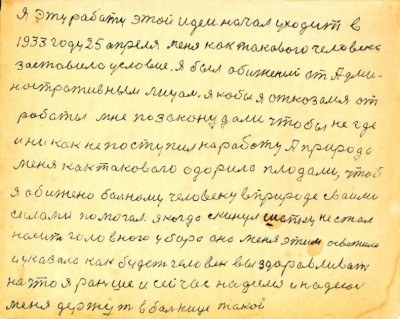 Я эту работу этой идеи начал уходить в
1933 году 25 апреля меня как такового человека
заставило условие. Я был обиженый от Адми-
ностративным лицам. Якобы я отказался от
работы мне по закону дали чтобы не где
и ни как не поступил на работу А природа
меня как такового одорила плодами, чтоб
я обижено балному человеку в природе сваими
силами помогал. Я когда скинул шапку, не стал
насить головного убора она меня этим осветила
и указала как будет человек выздоравливать
на что я раньше и сейчас наделся и надеюсь
меня держут в балнице такой